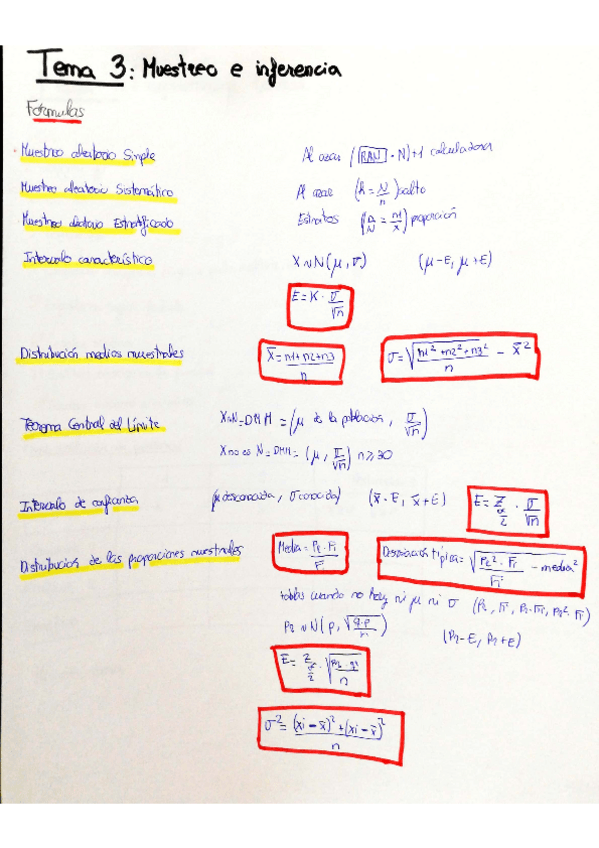 Tema 3: Muestreo e inferencia
Formulas
Muestreo aleatorio Simple Al azar (RAN · N)+1 calculadora
Muestreo aleatorio Sistemático Al azar (h = N/n) salto
Muestreo aleatorio Estratificado Estratos (n/N = n1/x) proporción
Intervalo característico X∼N(μ, σ) (μ-E, μ+E)
E = K · σ/√n
Distribución medias muestrales x̄ = n1+n2+n3/n σ = √(n1²+n2²+n3²/n) - x̄²
Teorema Central del Límite X∼N=DMM = (μ de la población, σ/√n)
X no es N = DMM = (μ, σ/√n) n≥30
Intervalo de confianza (μ desconocida, σ conocida) (x̄-E, x̄+E) E = Z α/2 · σ/√n
Distribución de las proporciones muestrales Media = Pi · Fi/Fi Desviación típica = √(Pi² · Fi/Fi - media²)
tablas cuando no hay ni μ ni σ
N(p, √(q·p/n))
E = Z α/2 ·
σ² = (xi - x̄)² + (xi - x̄)²/n